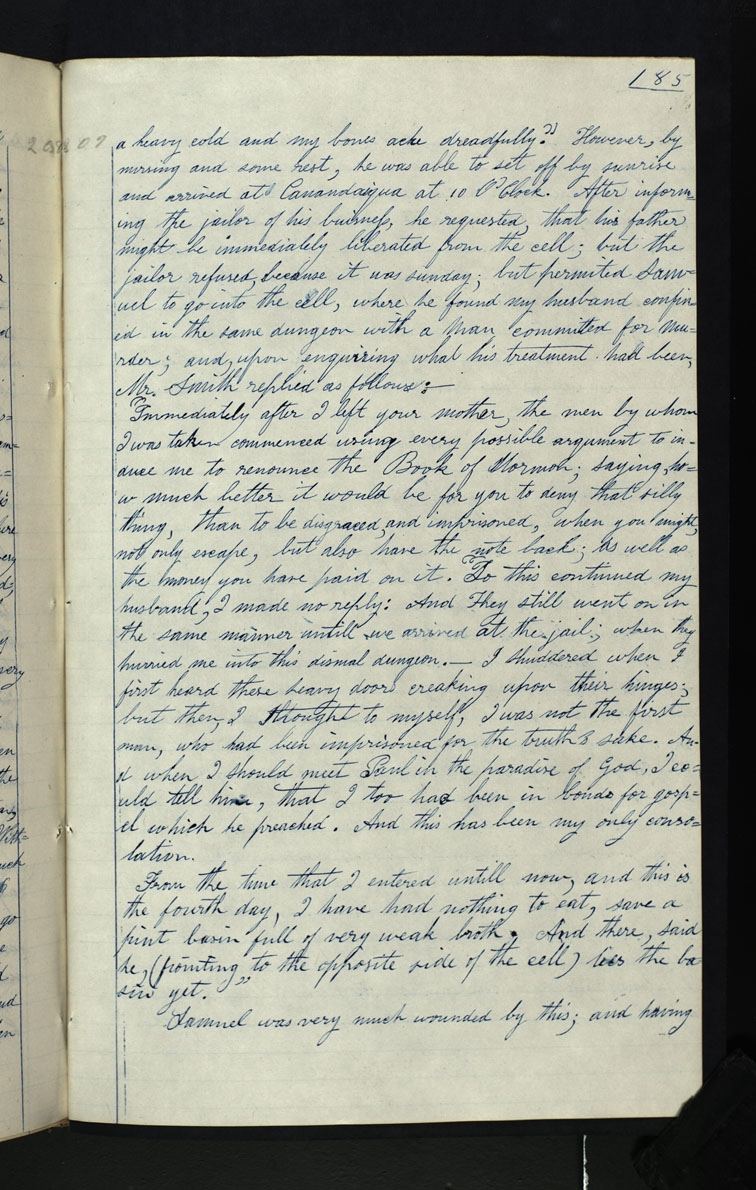 185
a heavy cold and my bones ache dreadfully." However, by
nursing and some rest, he was able to set off by sunrise
and arrived at Canandaigua at 10 O'Clock. After inform=
ing the jailor of his buisness, he requested, that his father
might be immediately liberated from the cell; but the
jailor refused, because it was sunday; but permited Sam=
uel to go into the cell, where he found my husband confin=
ed in the same dungeon with a man committed for mu=
rder; and, upon enquiring what his treatment had been,
Mr. Smith replied as follows:—
"Immediately after I left your mother, the men by whom
I was taken commenced using every possible argument to in=
duce me to renounce the Book of Mormon; saying, ho=
w much better it would be for you to deny that silly
thing, than to be disgraced, and imprisoned, when you might,
not only escape, but also have the note back; as well as
the money you have paid on it. To this continued my
husband, I made no reply: And They still went on in
the same manner untill we arrived at the jail; when they
hurried me into this dismal dungeon.— I shuddered when I
first heard these heavy doors creaking upon their hinges;
but then, I thought to myself, I was not the first
man, who had been imprisoned for the truth's sake. An=
d when I should meet Paul in the paradise of God, I co=
uld tell him, that I too had been in bonds for gosp=
el which he preached. And this has been my only conso=
lation.
From the time that I entered untill now, and this is
the fourth day, I have had nothing to eat, save a
pint basin full of very weak broth. And there, said
he, (pointing to the opposite side of the cell) lies the ba
sin yet."
Samuel was very much wounded by this; and having